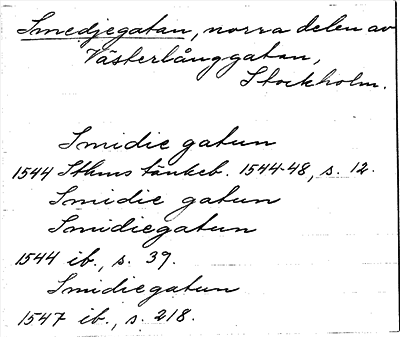 Smedjegatan, norra delen av
Västerlånggatan,
Stockholm.
Smidie gatun
1544 Sthms tänkeb. 1544-48, s. 12.
Smidie gatun
Smidiegatun
1544 ib., s. 39.
Smidiegatun
1547 ib., s. 218.